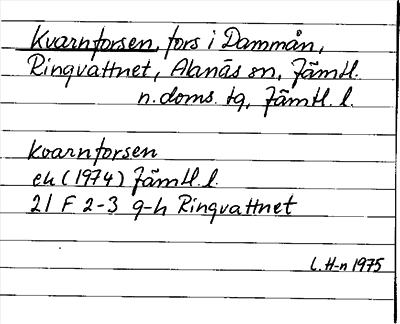 Kvarnforsen, fors i Dammån,
Ringvattnet, Alanäs sn, Jämtl.
n. doms. tg, Jämtl. l.
Kvarnforsen
ek (1974) Jämtl. l.
21 F 2-3 g-h Ringvattnet
L. H-n 1975